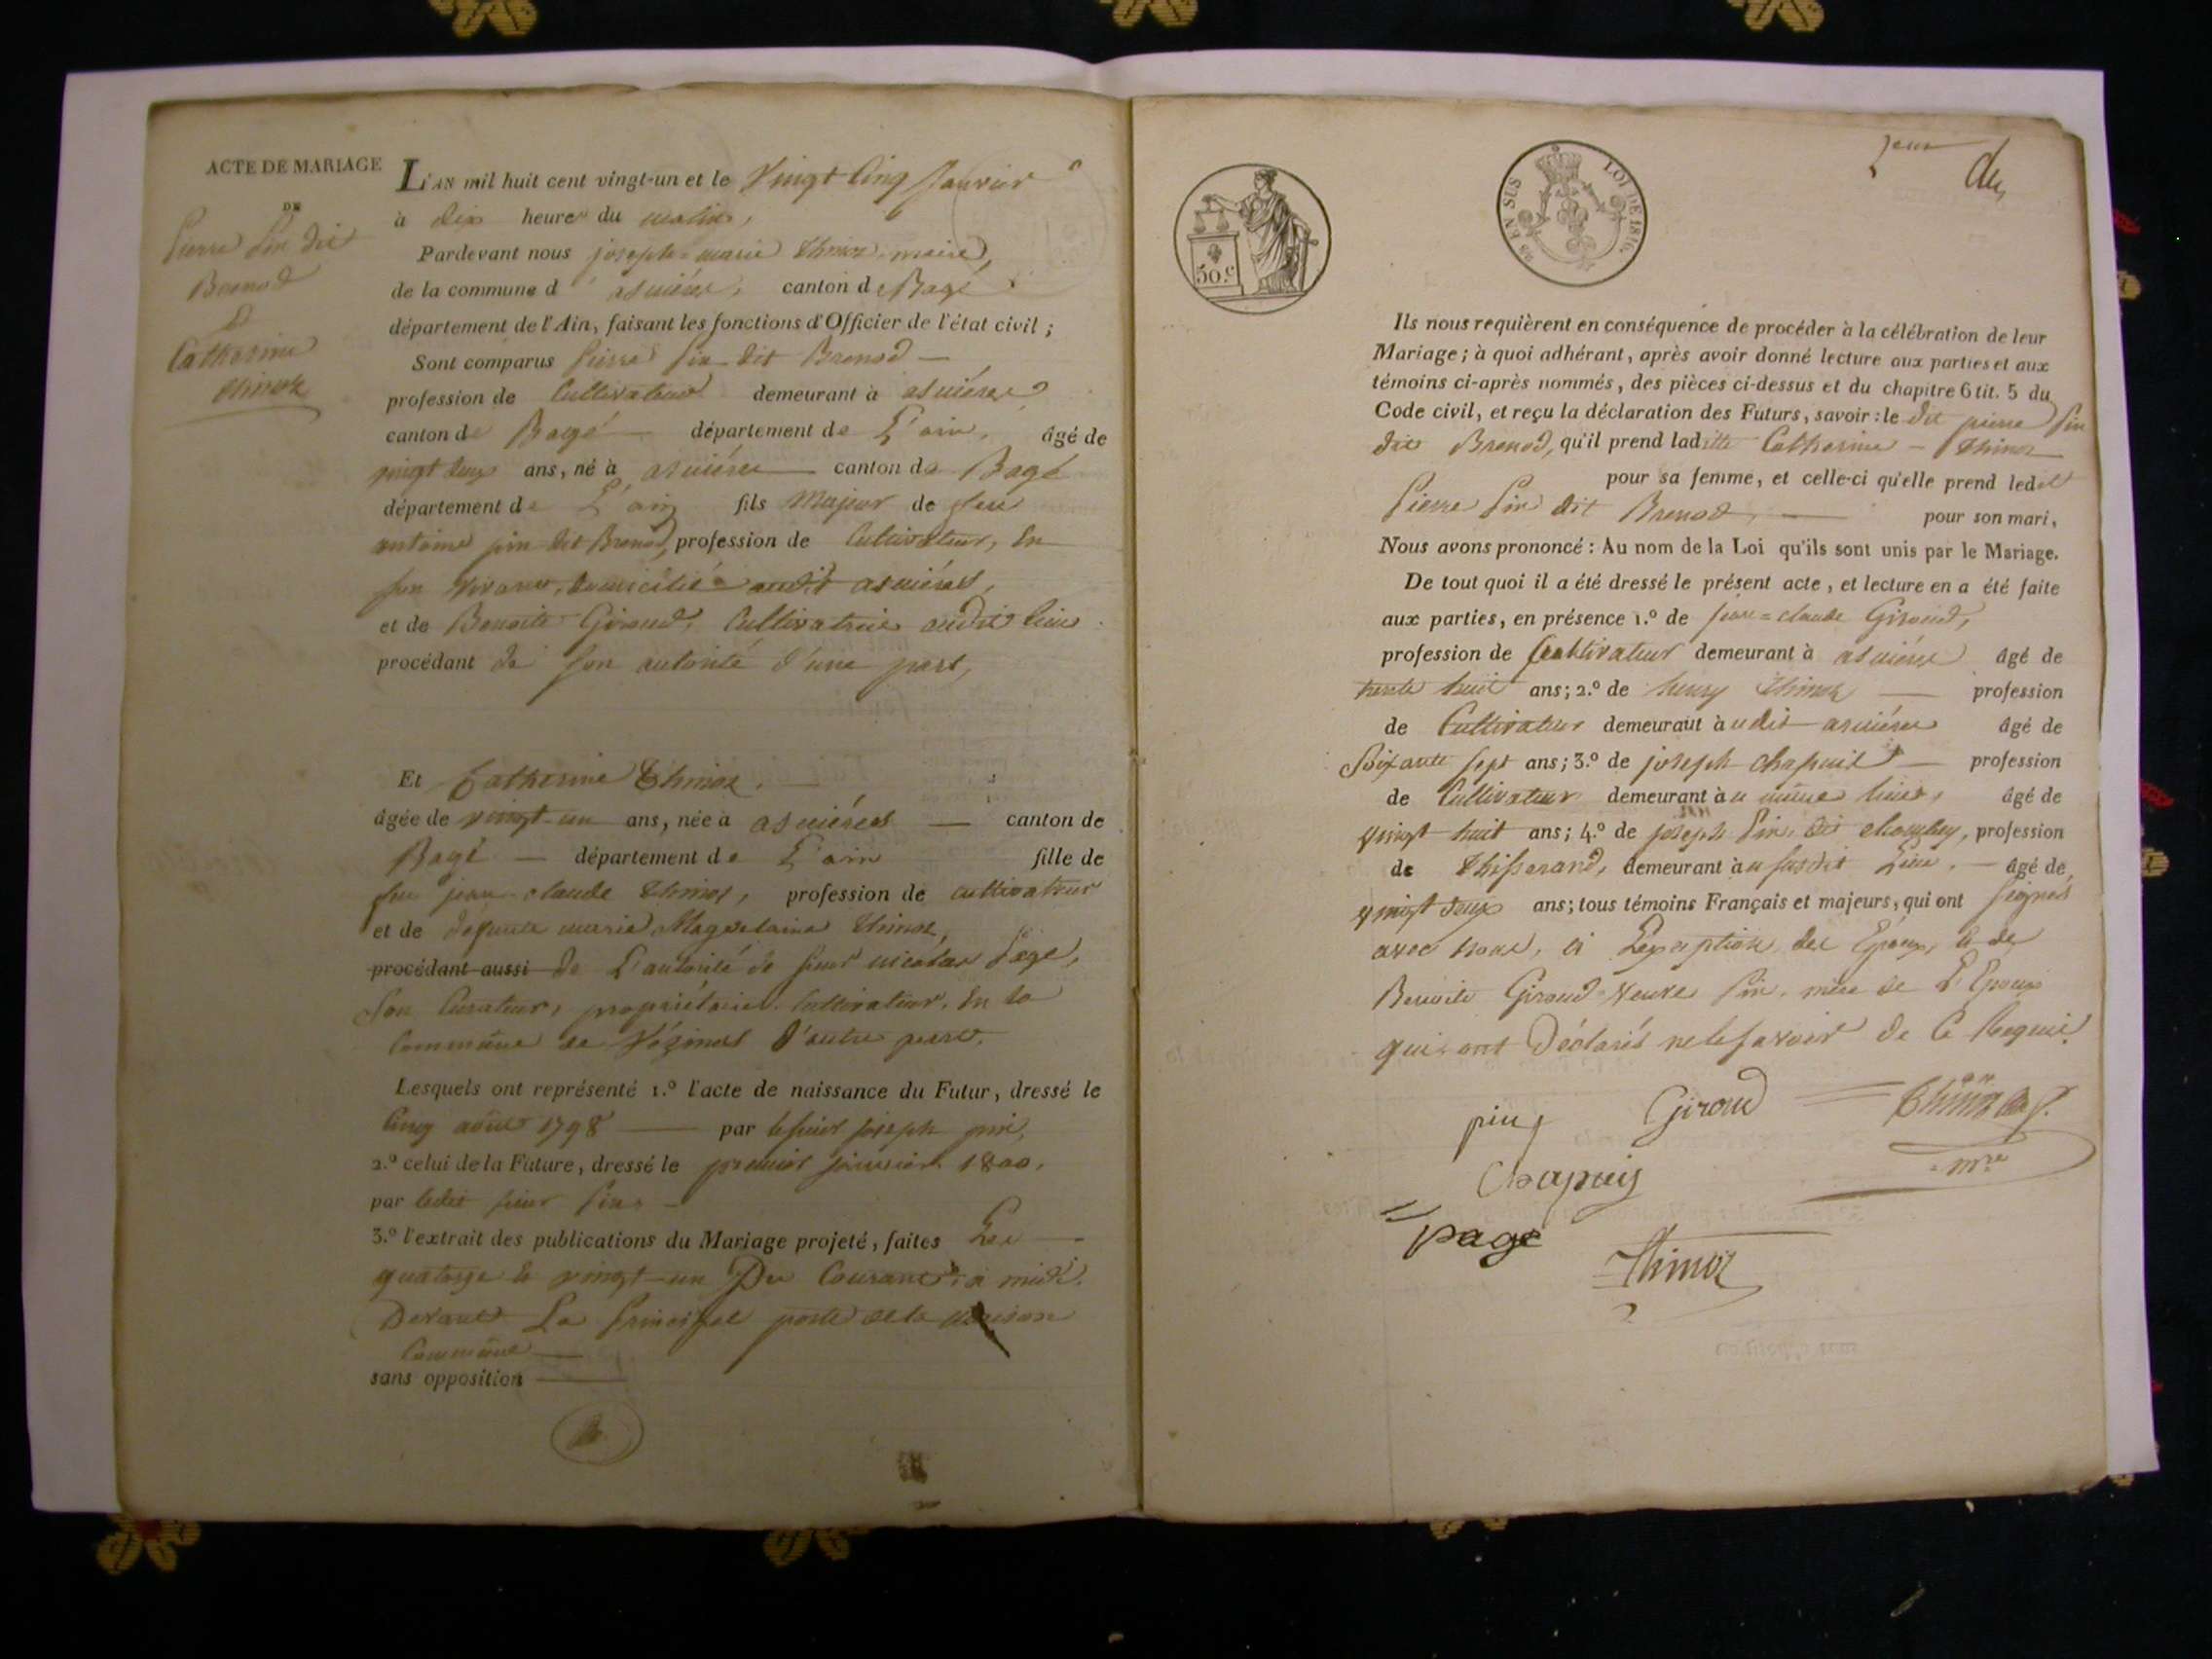 ACTE DE MARIAGE
DE
Pierre Pin dit
Brenod
&
Catherine
thinoz
L'AN mil huit cent vingt-un et le Vingt Cinq Janvier
à dix heures du matin,
Pardevant nous joseph-marie thinoz maire,
de la commune d'asnières, canton de Bagé
département de l'Ain, faisant les fonctions d'Officier de l'état civil ;
Sont comparus Pierre Pin dit Brenod —
profession de Cultivateur demeurant à asnières
canton de Bagé département de L'ain, âgé de
vingt deux ans, né à asnières canton de Bagé
département de L'ain fils Majeur de feu
antoine pin dit Brenod, profession de Cultivateur, En
son vivant, domicilié audit asnières,
et de Benoite Giroud, Cultivatrice audit lieu
procédant de son autorité d'une part,
Et Catherine Thinoz. —
âgée de vingt-un ans, née à asnières — canton de
Bagé — département de L'ain fille de
feu jean-claude thinoz, profession de cultivateur
et de défunte marie Magdelaine thinoz,
procédant aussi de L'autorité de sieur nicolas Page,
Son Curateur, propriétaire Cultivateur, En la
Commune de Vésines D'autre part.
Lesquels ont représenté 1.º l'acte de naissance du Futur, dressé le
Cinq août 1798 — par le sieur joseph pin,
2.º celui de la Future, dressé le premier janvier 1800,
par ledit sieur Pin, —
3.º l'extrait des publications du Mariage projeté, faites Les —
quatorze & vingt-un Du Courant, à midi,
Devant La Principal porte de la Maison
Commune —
sans opposition —
50.c
EN SUS
LOI DE 1816.
deux
Ils nous requièrent en conséquence de procéder à la célébration de leur
Mariage ; à quoi adhérant, après avoir donné lecture aux parties et aux
témoins ci-après nommés, des pièces ci-dessus et du chapitre 6 tit. 5 du
Code civil, et reçu la déclaration des Futurs, savoir : le dit pierre Pin
dit Brenod, qu'il prend ladite Catherine — Thinoz
pour sa femme, et celle-ci qu'elle prend ledit
Pierre Pin dit Brenod, — pour son mari,
Nous avons prononcé : Au nom de la Loi qu'ils sont unis par le Mariage.
De tout quoi il a été dressé le présent acte, et lecture en a été faite
aux parties, en présence 1.º de jean-claude Giroud,
profession de Cultivateur demeurant à asnières âgé de
trente huit ans ; 2.º de henry thinoz — profession
de Cultivateur demeurant àudit asnières âgé de
Soixante sept ans ; 3.º de joseph chapuis — profession
de Cultivateur demeurant àu même lieu, âgé de
vingt huit ans ; 4.º de joseph Pin, dit, profession
de thisserand, demeurant àu susdit Lieu, — âgé de
vingt deux ans ; tous témoins Français et majeurs, qui ont Signés
avec nous, à L'exception des Epoux, & de
Benoite Giroud Veuve Pin, mère de L'Epoux
qui ont Déclarés ne le savoir de Ce Requis.
pin
Giroud
thinoz
Chapuis
mre
page
Thinoz